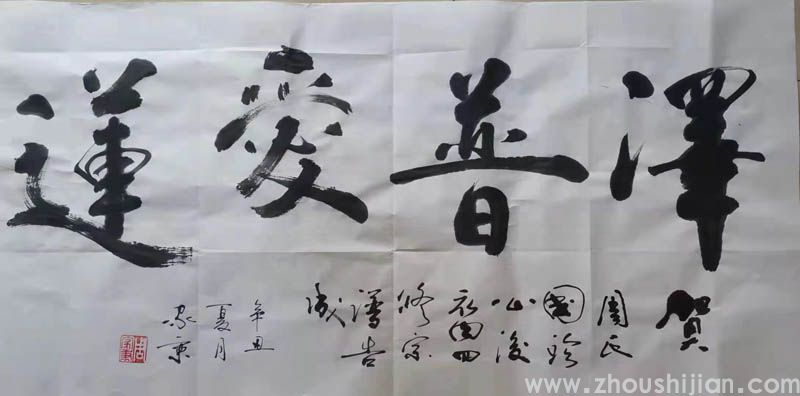 澤普愛蓮
賀
周氏
國珍
公後
裔四
修宗
譜告
成
辛丑
夏月
家
www.zhoushijian.com